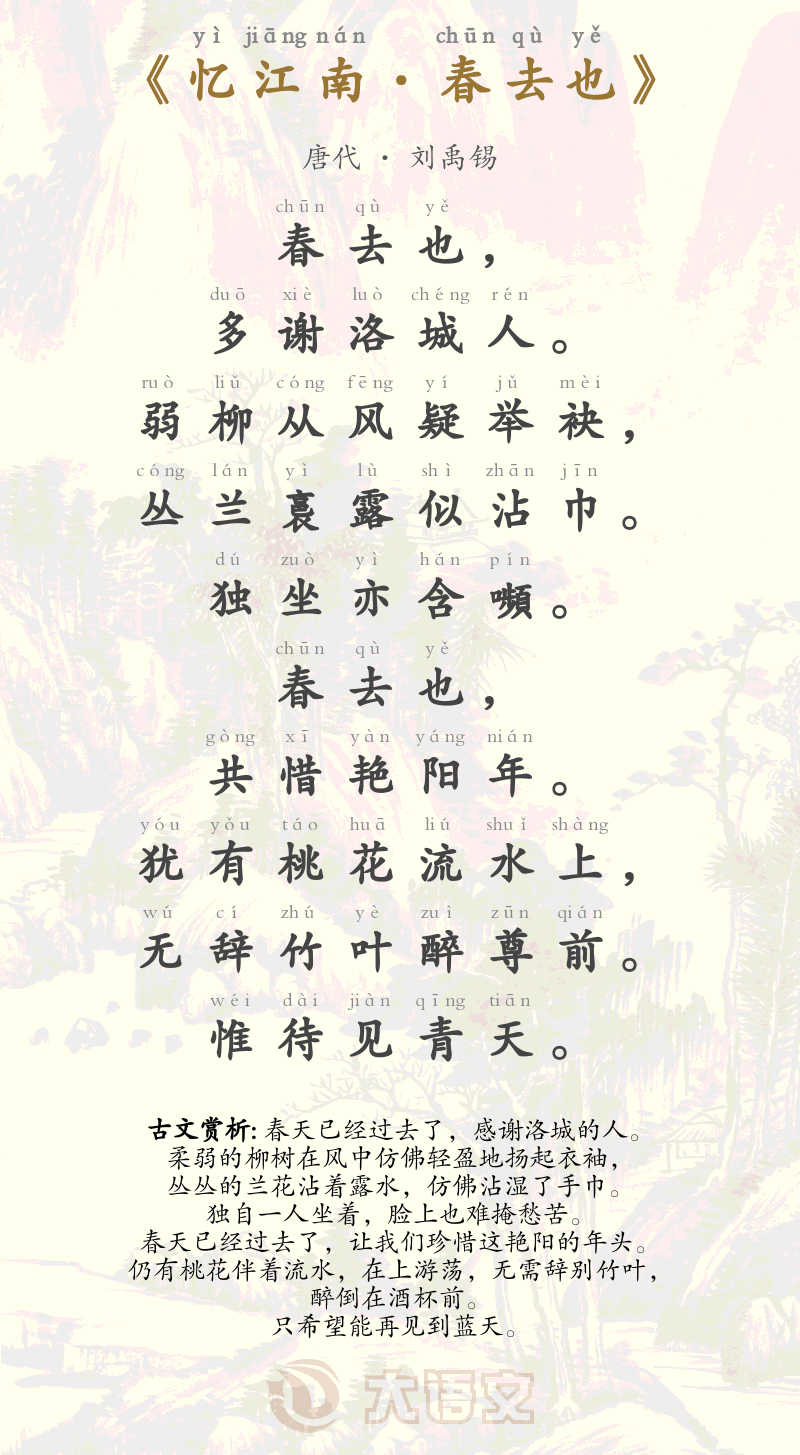 yì jiāng nán chūn qù yě
《忆江南·春去也》
唐代 · 刘禹锡
chūn qù yě
春去也，
duō xiè luò chéng rén
多谢洛城人。
ruò liǔ cóng fēng yí jǔ mèi
弱柳从风疑举袂，
cóng lán yì lù shì zhān jīn
丛兰裛露似沾巾。
dú zuò yì hán pín
独坐亦含嚬。
chūn qù yě
春去也，
gòng xī yàn yáng nián
共惜艳阳年。
yóu yǒu táo huā liú shuǐ shàng
犹有桃花流水上，
wú cí zhú yè zuì zūn qián
无辞竹叶醉尊前。
wéi dài jiàn qīng tiān
惟待见青天。
古文赏析: 春天已经过去了，感谢洛城的人。
柔弱的柳树在风中仿佛轻盈地扬起衣袖，
丛丛的兰花沾着露水，仿佛沾湿了手巾。
独自一人坐着，脸上也难掩愁苦。
春天已经过去了，让我们珍惜这艳阳的年头。
仍有桃花伴着流水，在上游荡，无需辞别竹叶，
醉倒在酒杯前。
只希望能再见到蓝天。
大语文